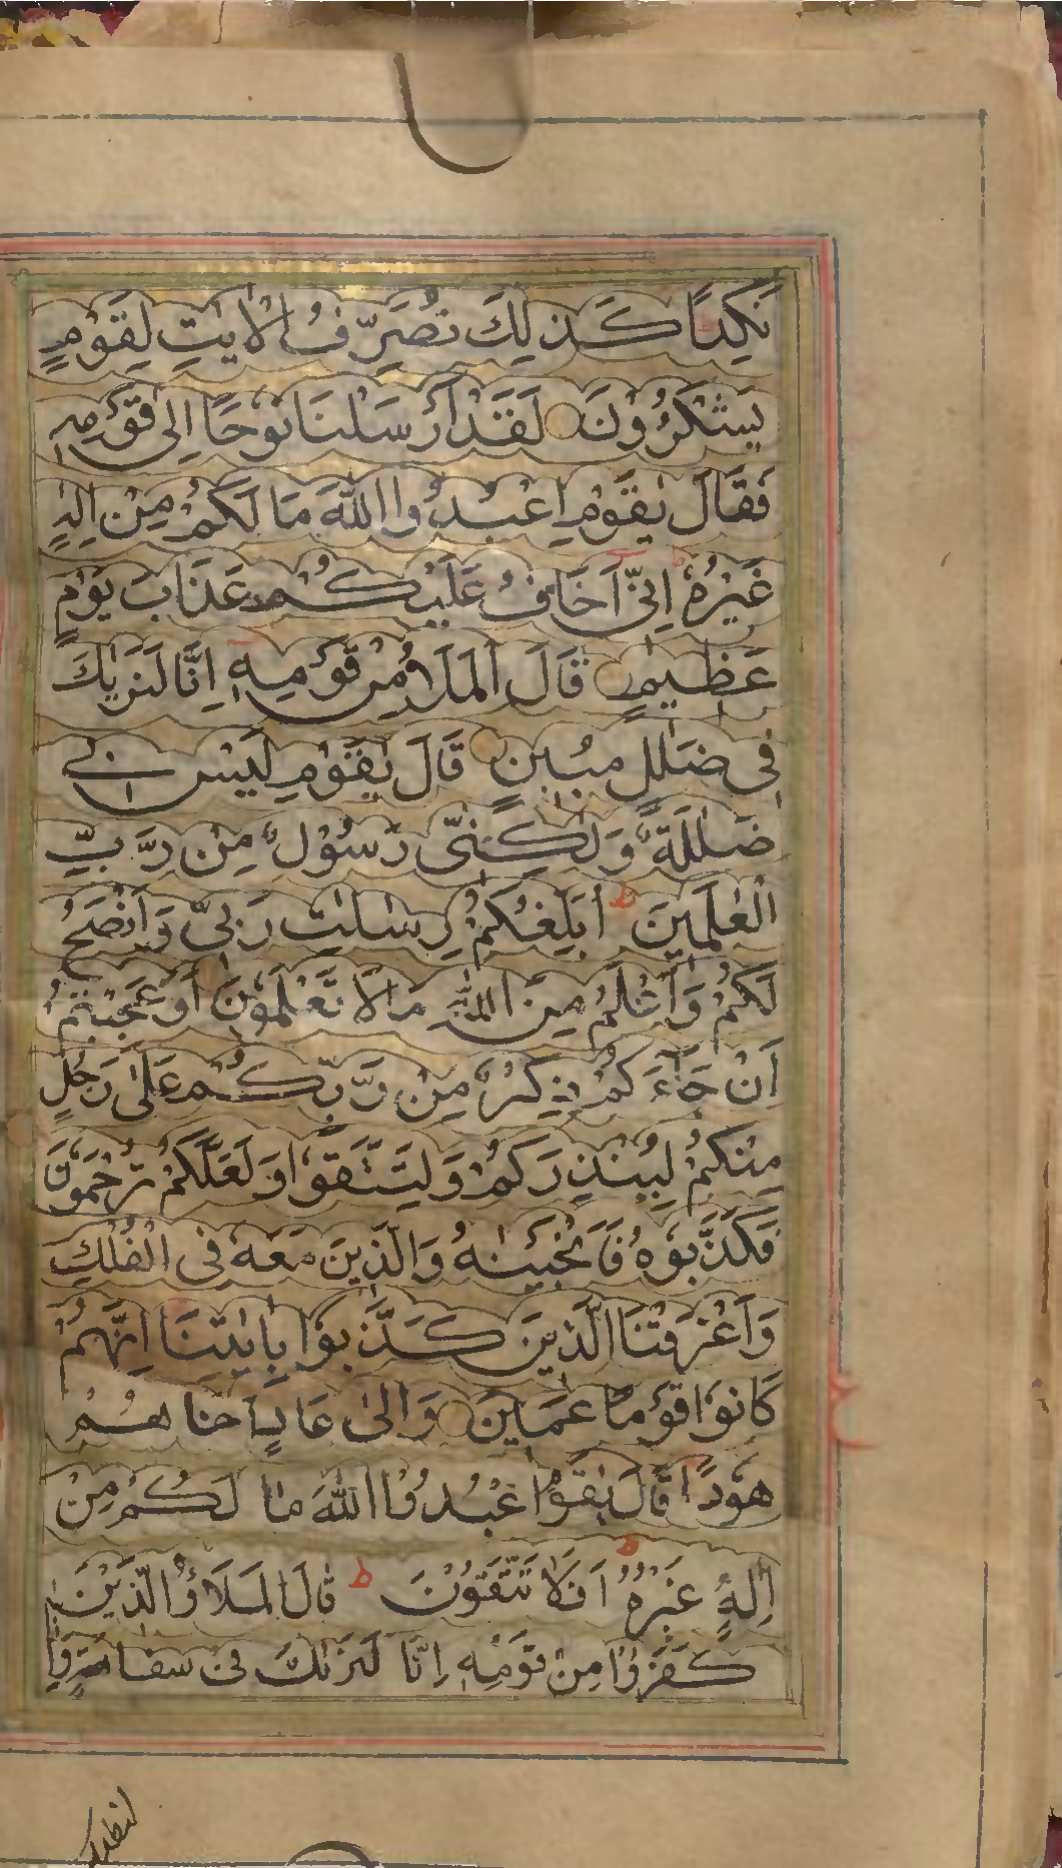 نَكِدًا كَذٰلِكَ نُصَرِّفُ الْاٰيٰتِ لِقَوْمٍ
يَشْكُرُوْنَ لَقَدْ اَرْسَلْنَا نُوْحًا اِلٰى قَوْمِهٖ
فَقَالَ يٰقَوْمِ اعْبُدُوا اللّٰهَ مَا لَكُمْ مِنْ اِلٰهٍ
غَيْرُهٗ اِنِّيْ اَخَافُ عَلَيْكُمْ عَذَابَ يَوْمٍ
عَظِيْمٍ قَالَ الْمَلَاُ مِنْ قَوْمِهٖ اِنَّا لَنَرٰىكَ
فِى ضَلٰلٍ مُبِيْنٍ قَالَ يٰقَوْمِ لَيْسَ بِيْ
ضَلٰلَةٌ وَلٰكِنِّى رَسُوْلٌ مِنْ رَبِّ
الْعٰلَمِيْنَ ط اُبَلِّغُكُمْ رِسٰلٰتِ رَبِّيْ وَاَنْصَحُ
لَكُمْ وَاَعْلَمُ مِنَ اللّٰهِ مَا لَا تَعْلَمُوْنَ اَوَعَجِبْتُمْ
اَنْ جَآءَكُمْ ذِكْرٌ مِنْ رَبِّكُمْ عَلٰى رَجُلٍ
مِنْكُمْ لِيُنْذِرَكُمْ وَلِتَتَّقُوْا وَلَعَلَّكُمْ تُرْحَمُوْنَ
فَكَذَّبُوْهُ فَاَنْجَيْنٰهُ وَالَّذِيْنَ مَعَهٗ فِى الْفُلْكِ
وَاَغْرَقْنَا الَّذِيْنَ كَذَّبُوْا بِاٰيٰتِنَا اِنَّهُمْ
كَانُوْا قَوْمًا عَمِيْنَ وَاِلٰى عَادٍ اَخَاهُمْ
هُوْدًا قَالَ يٰقَوْمِ اعْبُدُوا اللّٰهَ مَا لَكُمْ مِنْ
اِلٰهٍ غَيْرُهٗ ط اَفَلَا تَتَّقُوْنَ ط قَالَ الْمَلَاُ الَّذِيْنَ
كَفَرُوْا مِنْ قَوْمِهٖ اِنَّا لَنَرٰىكَ فِىْ سَفَاهَةٍ وَّاِ
لنظنك